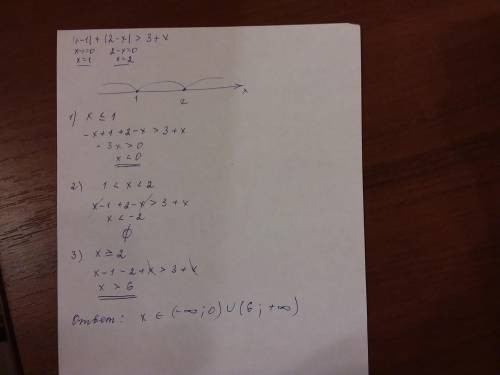 |x-1| + |2-x| > 3+x
x-1=0 2-x=0
x=1 x=2
1 2 x
1) x ≤ 1
-x+1+2-x > 3+x
-3x > 0
x < 0
2) 1 < x < 2
x-1+2-x > 3+x
x < -2
∅
3) x ≥ 2
x-1-2+x > 3+x
x > 6
Ответ: x ∈ (-∞; 0) ∪ (6; +∞)